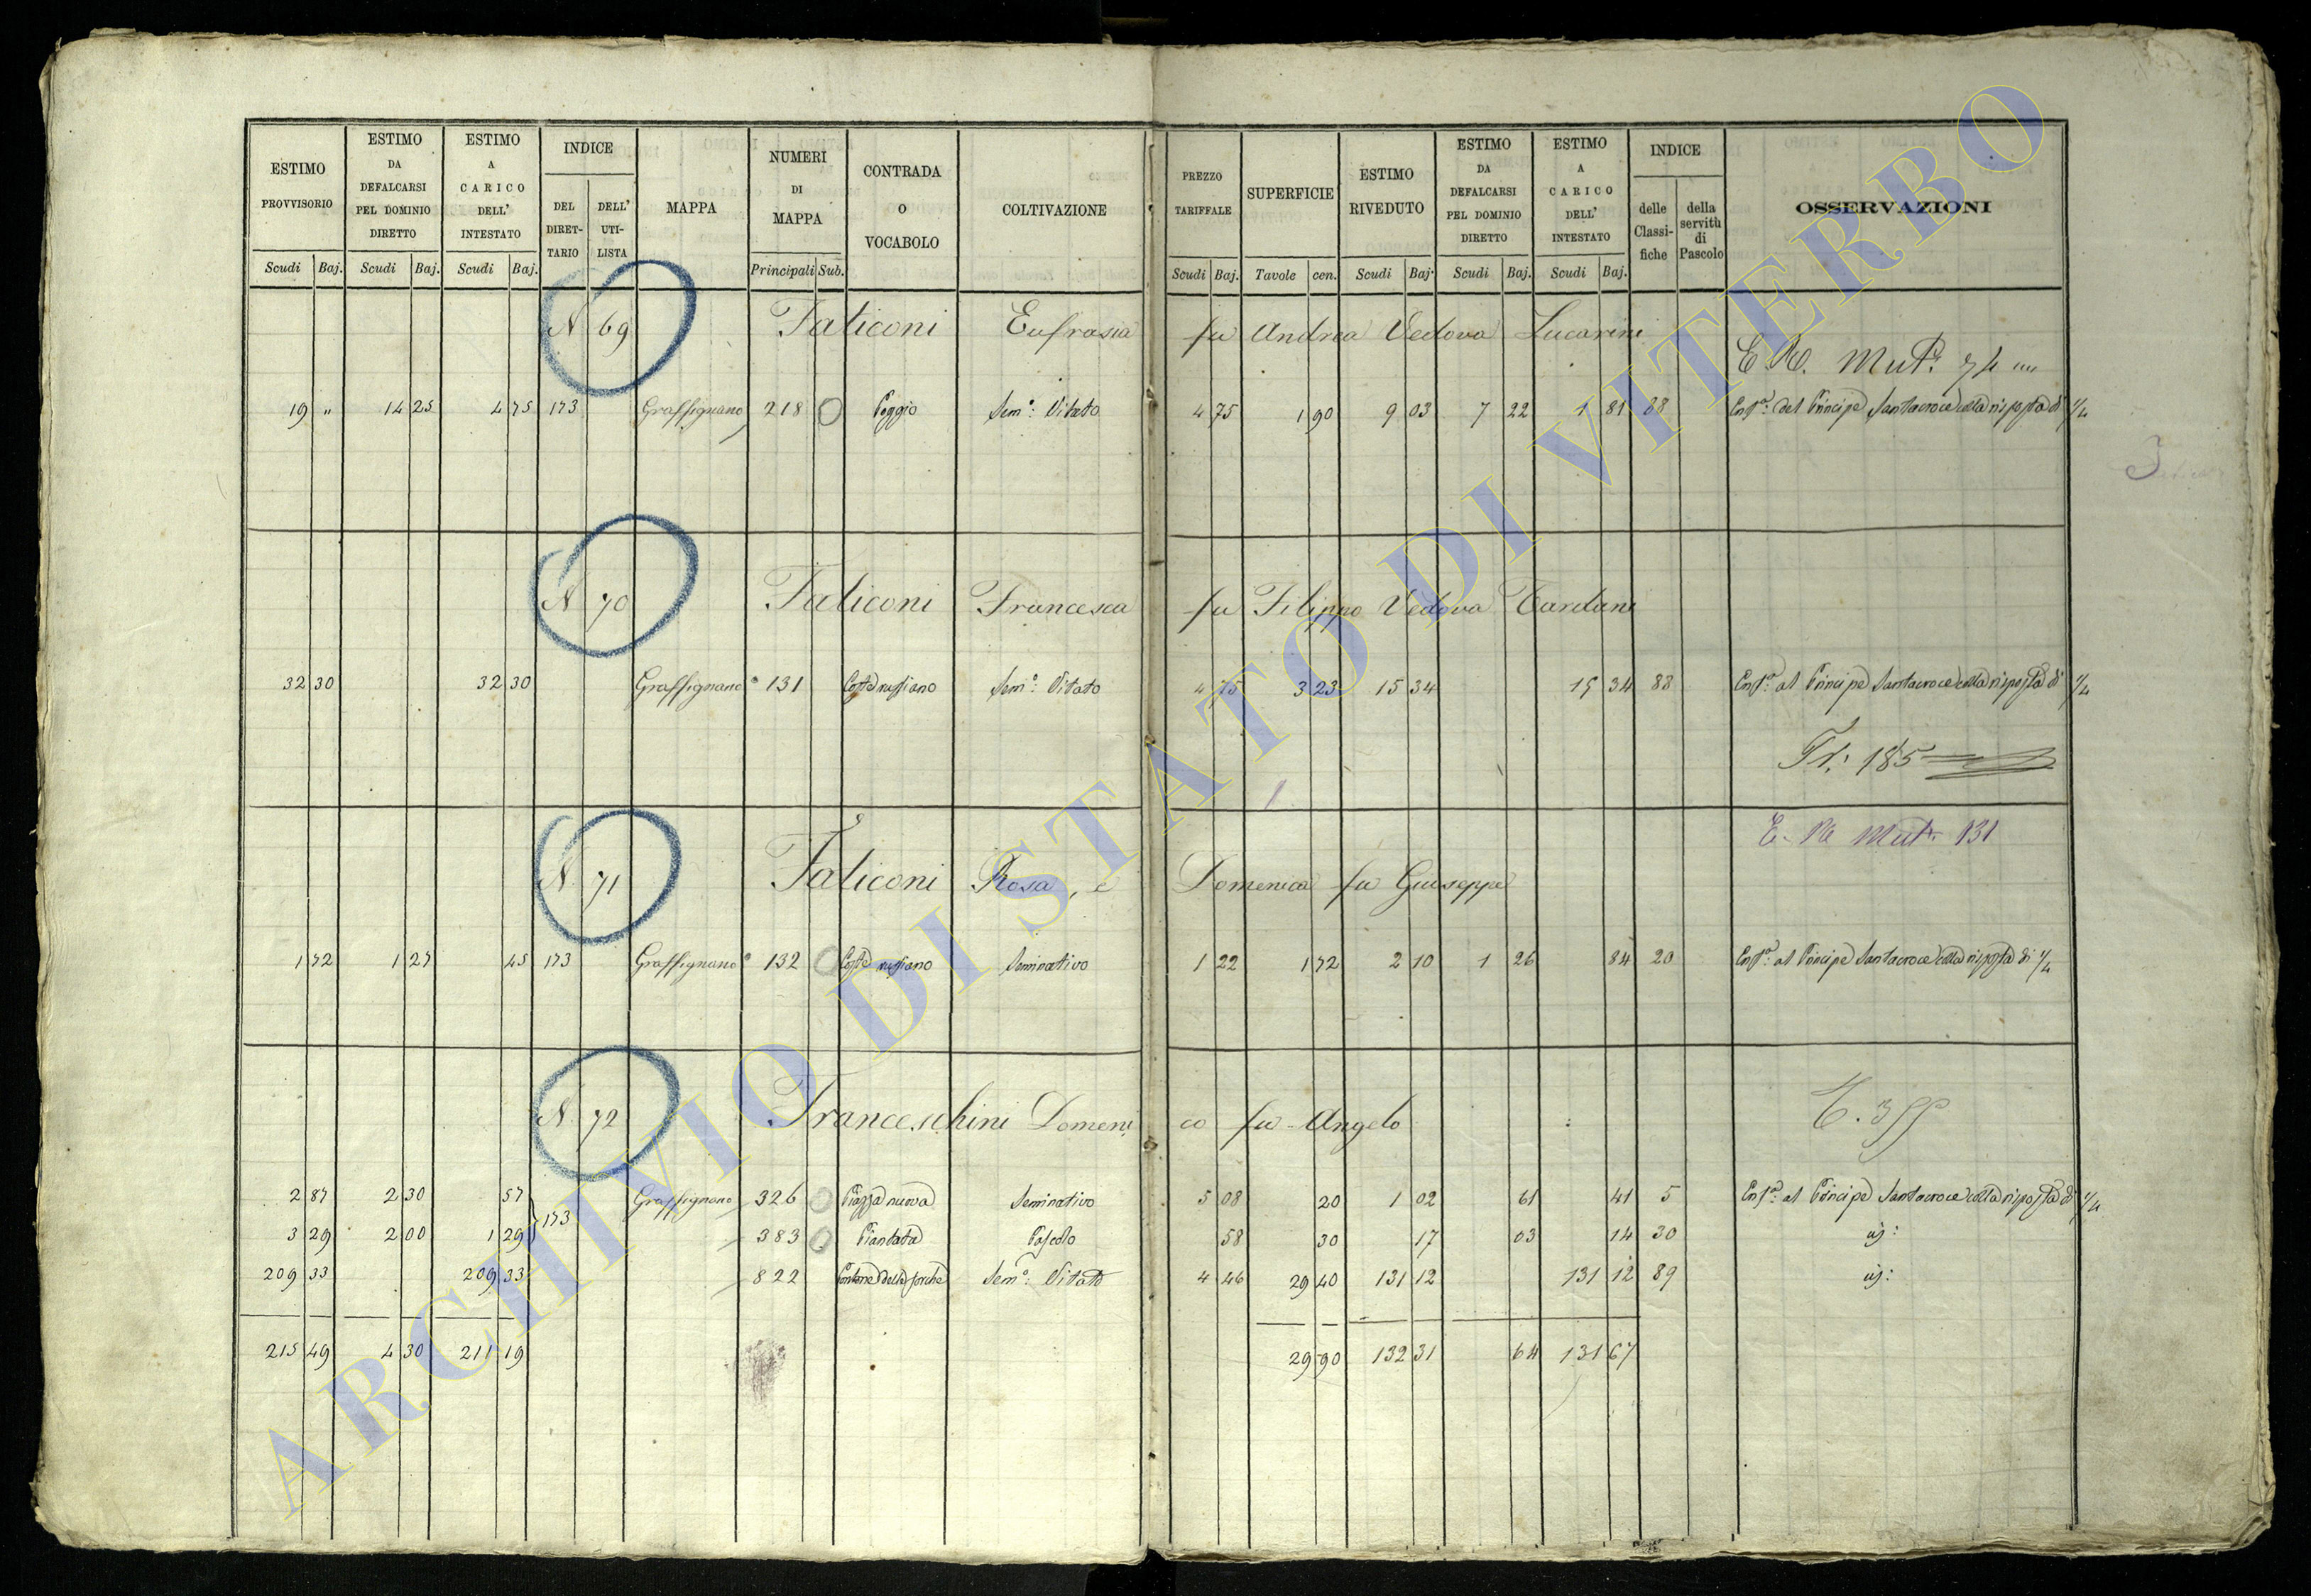 ESTIMO PROVVISORIO
ESTIMO DA DEFALCARSI PEL DOMINIO DIRETTO
ESTIMO A CARICO DELL' INTESTATO
INDICE
DEL DIRETTARIO
DELL' UTILISTA
MAPPA
NUMERI DI MAPPA
CONTRADA O VOCABOLO
COLTIVAZIONE
PREZZO TARIFFALE
SUPERFICIE
ESTIMO RIVEDUTO
ESTIMO DA DEFALCARSI PEL DOMINIO DIRETTO
ESTIMO A CARICO DELL' INTESTATO
INDICE
delle Classifiche
della servitù di Pascolo
OSSERVAZIONI
Scudi Baj. Scudi Baj. Scudi Baj. Principali Sub. Scudi Baj. Tavole cen. Scudi Baj. Scudi Baj. Scudi Baj.
N 69 Faliconi Eufrasia fu Andrea Vedova Lucarini
Mut. 74
19 " 14 25 4 75 173 Graffignano 218 Poggio Sem.o Vitato 4 75 1 90 9 03 7 22 1 81 88 Enf.a del Principe Santacroce colla risposta di 1/4
N 70 Faliconi Francesca fu Filippo Vedova Tardani
32 30 32 30 Graffignano 131 Sem.o Vitato 4 75 3 23 15 34 15 34 88 Enf.a al Principe Santacroce colla risposta di 1/4
185
E. Mut. 131
N. 71 Faliconi Rosa, e Domenica fu Giuseppe
1 72 1 27 45 173 Graffignano 132 Seminativo 1 22 1 72 2 10 1 26 84 20 Enf.a al Principe Santacroce colla risposta di 1/4
N. 72 Franceschini Domenico fu Angelo
2 87 2 30 57 173 Graffignano 326 Piazza nuova Seminativo 5 08 20 1 02 61 41 5 Enf.a al Principe Santacroce colla risposta di 1/4
3 29 2 00 1 29 383 Piantata Pascolo 58 30 17 03 14 30
209 33 209 33 822 Sem.o Vitato 4 46 29 40 131 12 131 12 89
215 49 4 30 211 19 29 90 132 31 64 131 67
ARCHIVIO DI STATO DI VITERBO